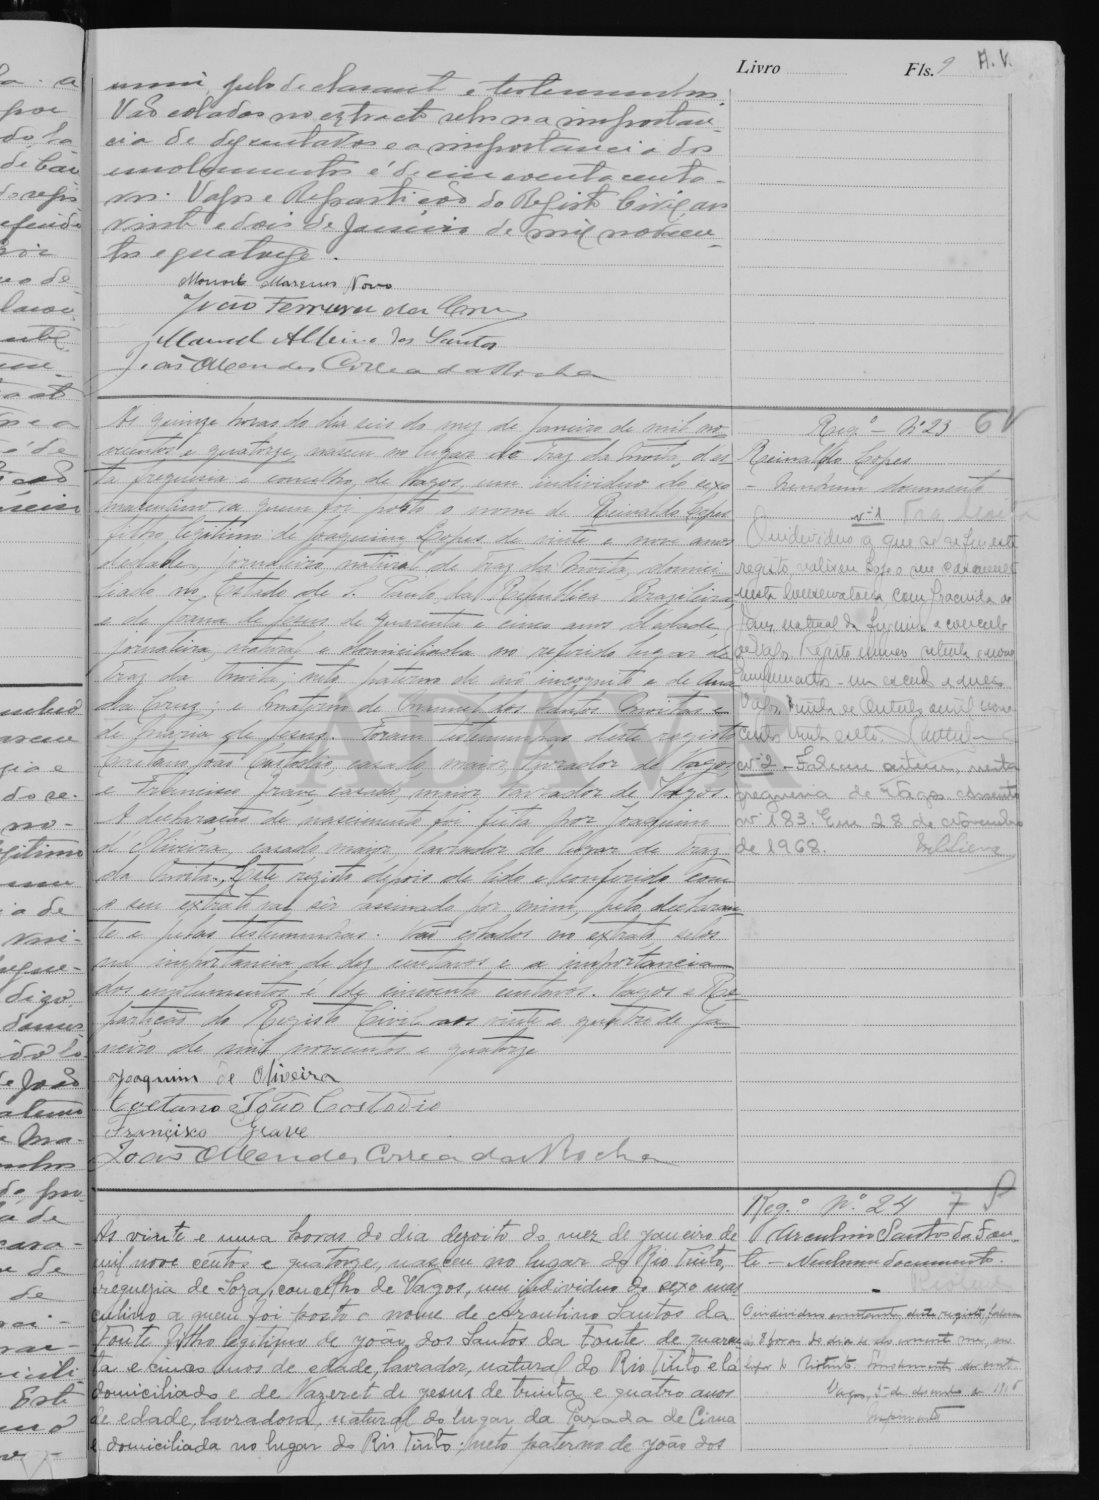 Livro Fls. 9 A. V.
mim, pelo declarante e testemunhas.
Vão colados no extracto selos na importan-
cia de dez centavos e a importancia dos
emolumentos é de cincoenta centa-
vos. Vagos e Repartição do Registo Civil aos
vinte e dois de Janeiro de mil novecen-
tos e quatorze.
Manoel Marques Novo
João Ferreira da Cruz
Manuel Albino dos Santos
João Mendes Correa da Rocha
Ás quinze horas do dia seis do mez de Janeiro de mil no-
vecentos e quatorze, nasceu no lugar de Traz da Moita, d'es-
ta freguesia e concelho de Vagos, um individuo do sexo
masculino, a quem foi posto o nome de Reinaldo Lopes
filho legitimo de Joaquim Lopes de vinte e nove anos
de edade, jornaleiro natural de Traz da Moita, domici-
liado no Estado de S. Paulo da Republica Brazileira,
e de Joana de Jesus de quarenta e cinco anos d'edade,
jornaleira, natural e domiciliada no referido lugar de
Traz da Moita; neto paterno de avô incognito e de Ana
da Cruz; e materno de Manuel dos Santos Moita e
de Maria de Jesus. Foram testemunhas deste registo
Caetano João Custodio, casado, maior, lavrador de Vagos,
e Francisco Grave, casado, maior, lavrador de Vagos.
A declaração de nascimento foi feita por Joaquim
d'Oliveira, casado, maior, lavrador do lugar de Traz
da Moita. Este registo depois de lido e conferido com
o seu extrato vai ser assinado por mim, pelo declaran-
te e pelas testemunhas. Vão colados no extrato, selos
na importancia de dez centavos e a importancia
dos emolumentos é de cincoenta centavos. Vagos e Re-
partição do Registo Civil aos vinte e quatro de Ja-
neiro de mil novecentos e quatorze
Joaquim de Oliveira
Caetano João Costodio
Francisco Grave
João Mendes Correa da Rocha
Reg.º - Nº 23 6 V
Reinaldo Lopes
- Nenhum documento
nº 1
O individuo a que se refere este
registo realizou hoje o seu casamento
nesta Conservatoria com Gracinda de
Jesus natural de
de Vagos Registo numero setenta e nove
Emolumentos - um escudo e
Vagos, trinta de Outubro de mil nove
centos trinta e oito.
nº 2 - Faleceu ontem, nesta
freguesia de Vagos. Assento
nº 183. Em 28 de Novembro
de 1968.
ADAVR
Reg.º Nº. 24 7
Arcenlino Santos da Fon-
te - Nenhum documento.
Ás vinte e uma horas do dia dezoito do mez de janeiro de
mil nove centos e quatorze, nasceu no lugar do Rio Tinto,
freguezia de Soza, concelho de Vagos, um individuo do sexo mas
culino a quem foi posto o nome de Santos da
Fonte filho legitimo de João dos Santos da Fonte de quaren
ta e cinco anos de edade, lavrador, natural do Rio Tinto e lá
domiciliado e de Nazeret de Jesus de trinta e quatro anos
de edade, lavradora, natural do lugar da Parada de Cima
e domiciliada no lugar do Rio Tinto; neto paterno de João dos
O individuo deste registo, faleceu
ás 8 horas do dia
lugar do Riotinto.
Vagos, 5 de dezembro de 1916